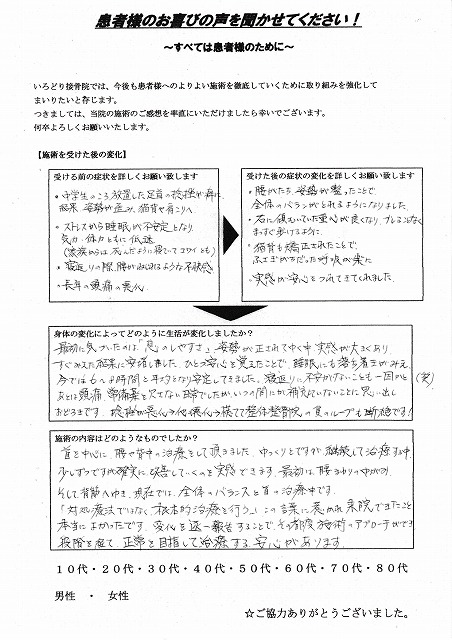 患者様のお喜びの声を聞かせてください！
～すべては患者様のために～
いろどり接骨院では、今後も患者様へのよりよい施術を徹底していくために取り組みを強化して
まいりたいと存じます。
つきましては、当院の施術のご感想を率直にいただけましたら幸いでございます。
何卒よろしくお願いいたします。
【施術を受けた後の変化】
受ける前の症状を詳しくお願い致します
・中学生のころ放置した足首の捻挫が
結果、姿勢が歪み、猫背や肩こりへ
・ストレスから睡眠が不安定となり
気力・体力ともに低迷
(家族からは死んだように寝ていてコワイとも)
・寝返りの際、腰がねじれるような不快感
・長年の頭痛の悪化
受けた後の症状の変化を詳しくお願い致します
・腰がたち、姿勢が整ったことで
全体のバランスがとれるようになりました。
・右に傾いていた重心が良くなり、ブレることなく
まっすぐ歩けるように
・猫背も矯正されたことで
ふさぎがちだった呼吸が楽に
・実感が安心をつれてきてくれました。
身体の変化によってどのように生活が変化しましたか？
最初に気づいたのは「息のしやすさ」、姿勢が正されてゆく中、実感が大きくあり、
すぐみえた結果に安堵しました。ひとつ安心を覚えたことで、睡眠にも落ち着きがみえ、
今では6～8時間と等力となり安定してきました。寝返りに不安がないことも一因かと
あとは頭痛。常備薬を欠せない日常でしたが、いつの間にか補充していないことに思い出し (笑)
おどろきです。捻挫が悪化→代償悪化→慌てて整体整骨院の負のループも断絶です！
施術の内容はどのようなものでしたか？
首を中心に腰や背中の治療をして頂きました。ゆっくりとですが、継続して治療する中、
少しずつですが確実に改善していくのを実感できます。最初は腰まわりのゆがみ、
そして背筋へゆき、現在では、全体のバランスと首の治療中です。
「対処療法ではなく、根本的治療を行う」この言葉に惹かれ来院できたこと
本当によかったです。変化を逐一報告することで、その都度施術のアプローチができ
段階を経て、正常を目指して治療する安心があります。
１０代・２０代・３０代・４０代・５０代・６０代・７０代・８０代
男性　・　女性
☆ご協力ありがとうございました。